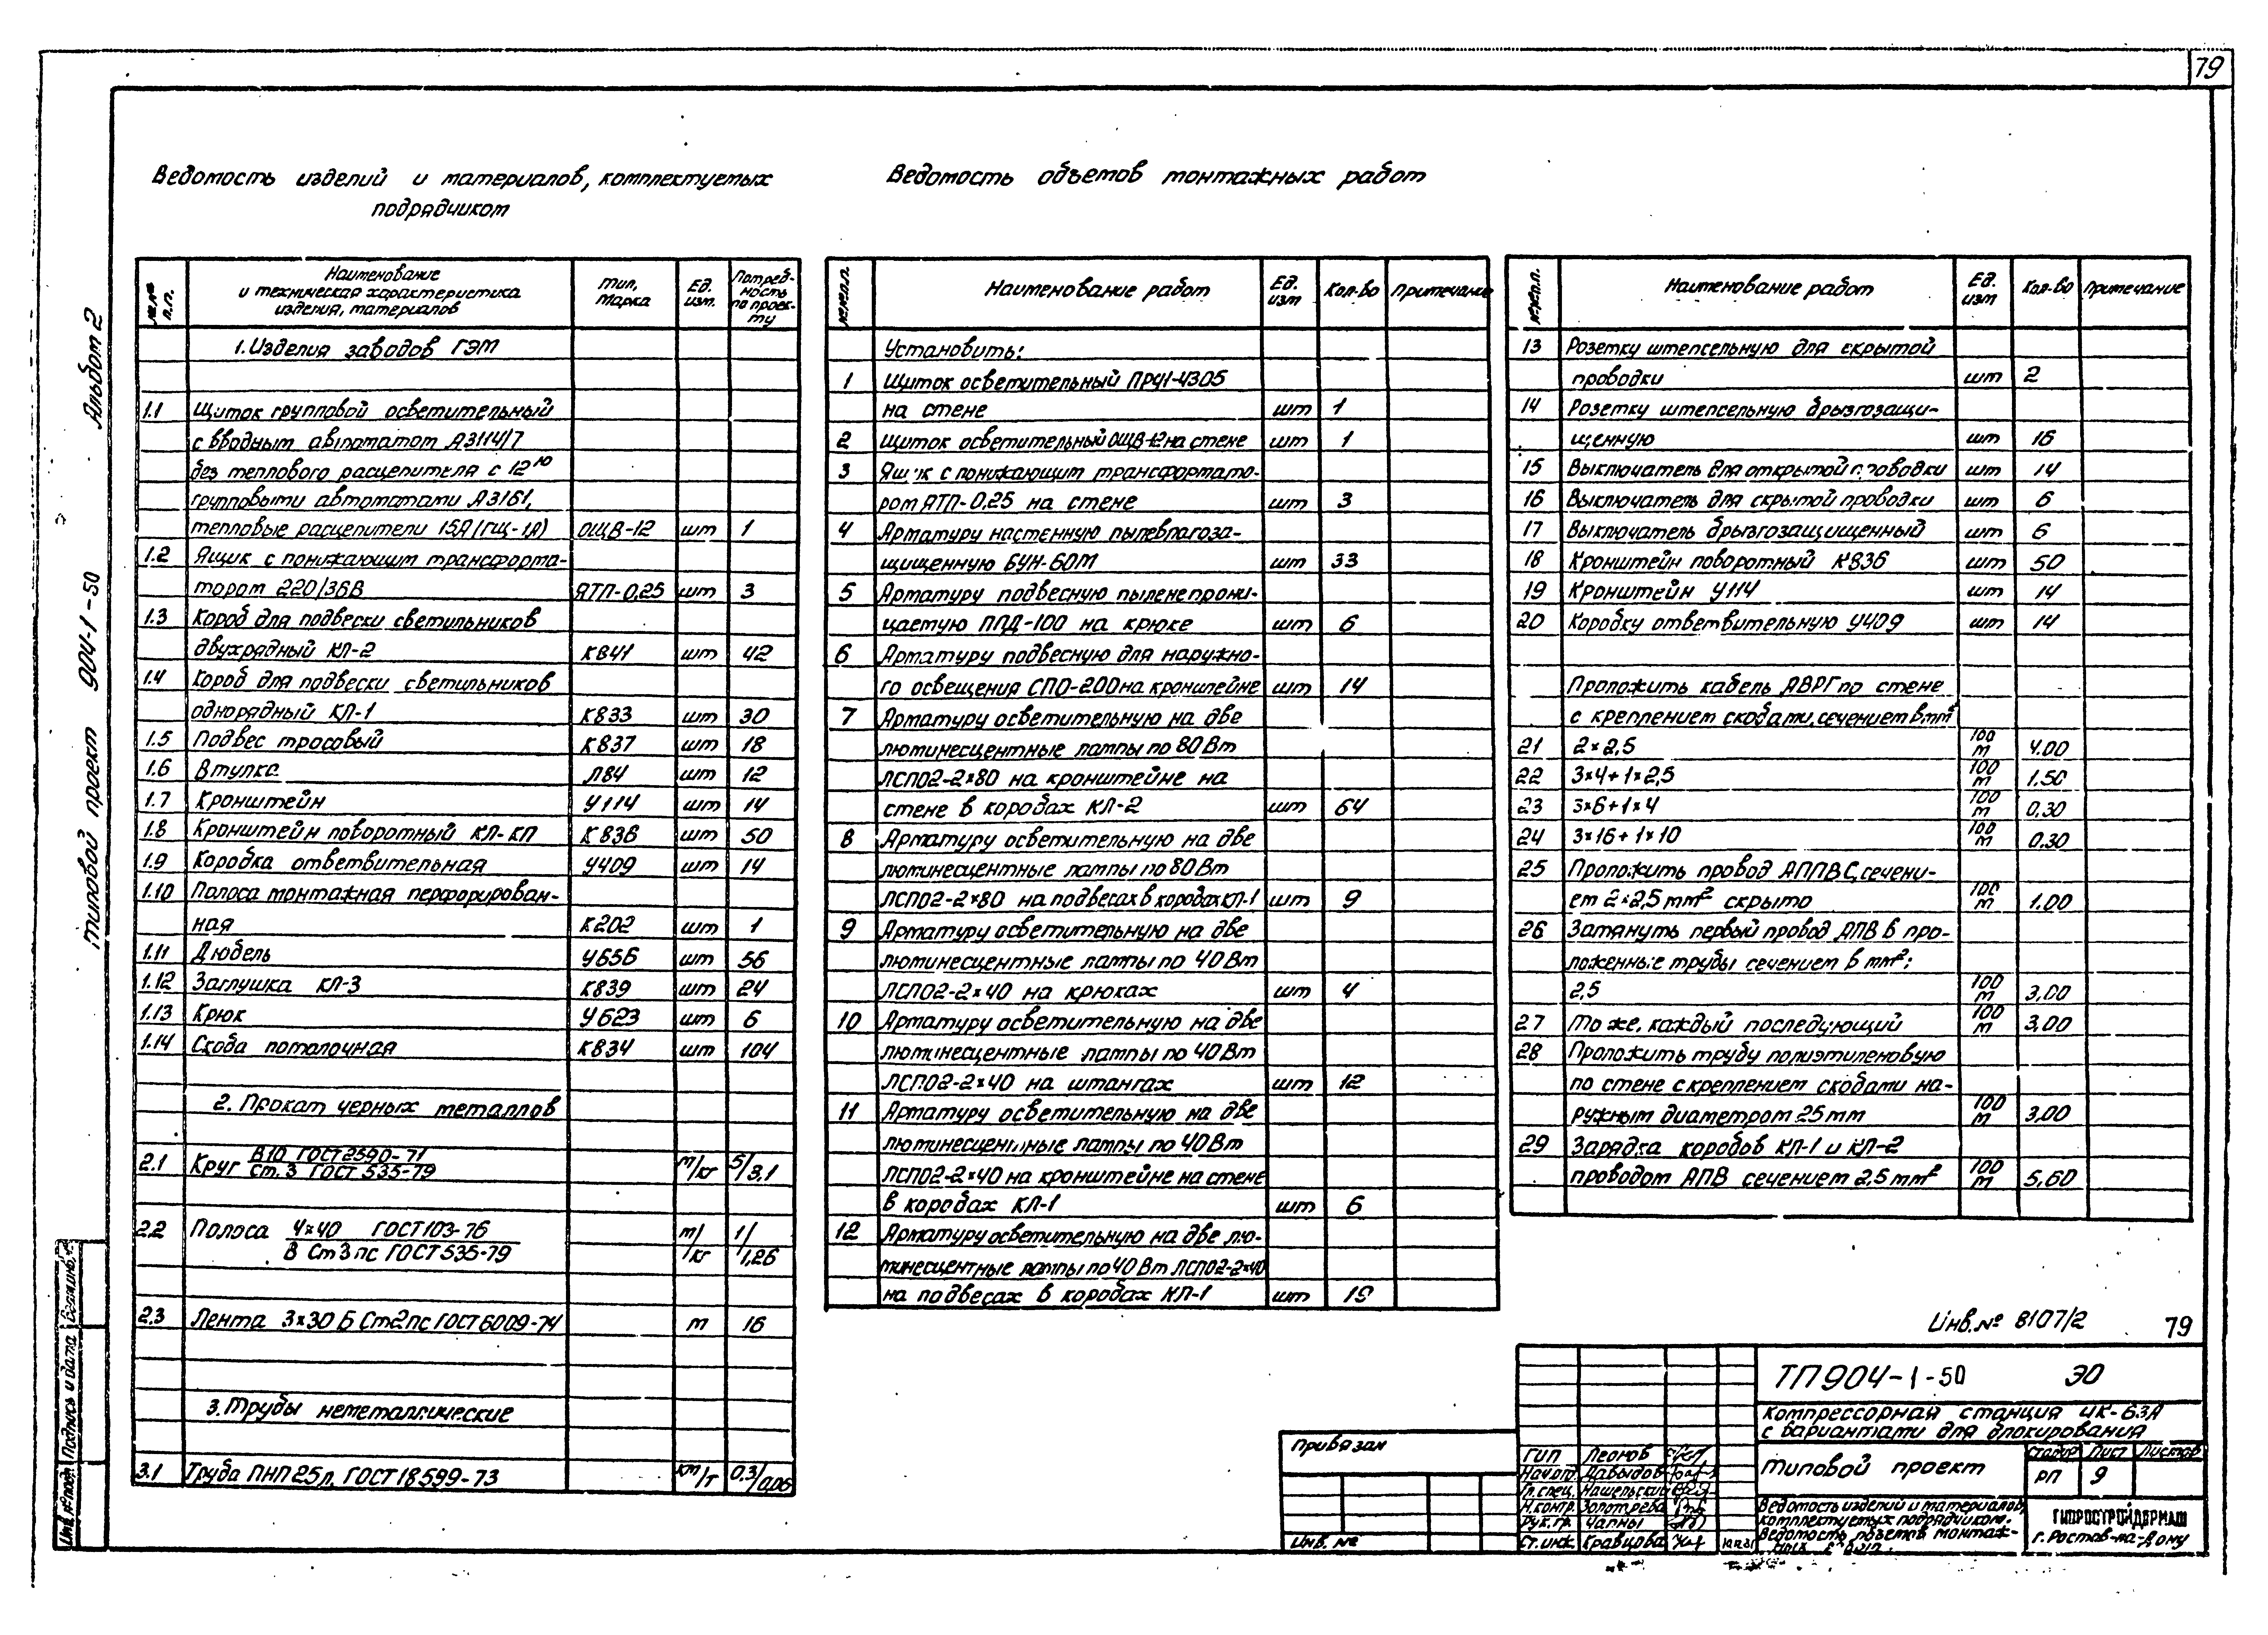 79
Ведомость изделий и материалов, комплектуемых
подрядчиком
№№ п.п.
Наименование
и техническая характеристика
изделия, материалов
Тип,
марка
Ед.
изм.
Потреб-
ность
по проек-
ту
1. Изделия заводов ГЭМ
1.1 Щиток групповой осветительный
с вводным автоматом А3114/7
без теплового расцепителя с 12ю
групповыми автоматами А3161,
тепловые расцепители 15А (гщ-1А) ОЩВ-12 шт 1
1.2 Ящик с понижающим трансформа-
тором 220/36В ЯТП-0,25 шт 3
1.3 Короб для подвески светильников
двухрядный КЛ-2 К841 шт 42
1.4 Короб для подвески светильников
однорядный КЛ-1 К833 шт 30
1.5 Подвес тросовый К837 шт 18
1.6 Втулка Л84 шт 12
1.7 Кронштейн У114 шт 14
1.8 Кронштейн поворотный КЛ-КП К836 шт 50
1.9 Коробка ответвительная У409 шт 14
1.10 Полоса монтажная перфорирован-
ная К202 шт 1
1.11 Дюбель У656 шт 56
1.12 Заглушка КЛ-3 К839 шт 24
1.13 Крюк У623 шт 6
1.14 Скоба потолочная К834 шт 104
2. Прокат черных металлов
2.1 Круг В10 ГОСТ 2590-71 / Ст.3 ГОСТ 535-79 м/кг 5/3,1
2.2 Полоса 4×40 ГОСТ 103-76 / В Ст3пс ГОСТ 535-79 м/кг 1/1,26
2.3 Лента 3×30 Б Ст2пс ГОСТ 6009-74 м 16
3. Трубы неметаллические
3.1 Труба ПНП 25л, ГОСТ 18599-73 км/т 0,3/0,06
Ведомость объемов монтажных работ
№№п.п. Наименование работ Ед. изм Кол-во Примечание
Установить:
1 Щиток осветительный ПР41-4305
на стене шт 1
2 Щиток осветительный ОЩВ-12 на стене шт 1
3 Ящик с понижающим трансформато-
ром ЯТП-0,25 на стене шт 3
4 Арматуру настенную пылевлагоза-
щищенную БУН-60М шт 33
5 Арматуру подвесную пыленепрони-
цаемую ППД-100 на крюке шт 6
6 Арматуру подвесную для наружно-
го освещения СПО-200 на кронштейне шт 14
7 Арматуру осветительную на две
люминесцентные лампы по 80 Вт
ЛСП02-2×80 на кронштейне на
стене в коробах КЛ-2 шт 64
8 Арматуру осветительную на две
люминесцентные лампы по 80 Вт
ЛСП02-2×80 на подвесах в коробах КЛ-1 шт 9
9 Арматуру осветительную на две
люминесцентные лампы по 40 Вт
ЛСП02-2×40 на крюках шт 4
10 Арматуру осветительную на две
люминесцентные лампы по 40 Вт
ЛСП02-2×40 на штангах шт 12
11 Арматуру осветительную на две
люминесцентные лампы по 40 Вт
ЛСП02-2×40 на кронштейне на стене
в коробах КЛ-1 шт 6
12 Арматуру осветительную на две лю-
минесцентные лампы по 40 Вт ЛСП02-2×40
на подвесах в коробах КЛ-1 шт 19
№№п.п. Наименование работ Ед. изм Кол-во Примечание
13 Розетку штепсельную для скрытой
проводки шт 2
14 Розетку штепсельную брызгозащи-
щенную шт 16
15 Выключатель для открытой проводки шт 14
16 Выключатель для скрытой проводки шт 6
17 Выключатель брызгозащищенный шт 6
18 Кронштейн поворотный К836 шт 50
19 Кронштейн У114 шт 14
20 Коробку ответвительную У409 шт 14
Проложить кабель АВРГ по стене
с креплением скобами, сечением в мм²
21 2×2,5 100 м 4.00
22 3×4+1×2,5 100 м 1.50
23 3×6+1×4 100 м 0,30
24 3×16+1×10 100 м 0.30
25 Проложить провод АППВС, сечени-
ем 2×2,5 мм² скрыто 100 м 1.00
26 Затянуть первый провод АПВ в про-
ложенные трубы сечением в мм²:
2,5 100 м 3,00
27 То же, каждый последующий 100 м 3,00
28 Проложить трубу полиэтиленовую
по стене с креплением скобами на-
ружным диаметром 25 мм 100 м 3,00
29 Зарядка коробов КЛ-1 и КЛ-2
проводом АПВ сечением 2,5 мм² 100 м 5,60
Типовой проект 904-1-50 Альбом 2
Инв.№подл. Подпись и дата Взам.инв.№
Инв.№ 8107/2 79
ТП904-1-50 ЭО
Компрессорная станция 4К-63А
с вариантами для блокирования
Типовой проект
Стадия Лист Листов
РП 9
Ведомость изделий и материалов,
комплектуемых подрядчиком.
Ведомость объемов монтаж-
ных работ.
ГИПРОСТРОЙДОРМАШ
г. Ростов-на-Дону
Привязан
Инв. №
ГИП Леонов
Нач.отд. Давыдов
Гл.спец. Нашельский
Н.контр. Золотрева
Рук.гр. Чапны
Ст.инж. Кравцова